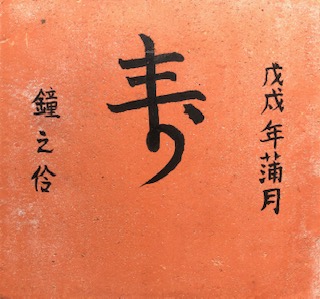 戊戌年蒲月
寿
鐘之伶